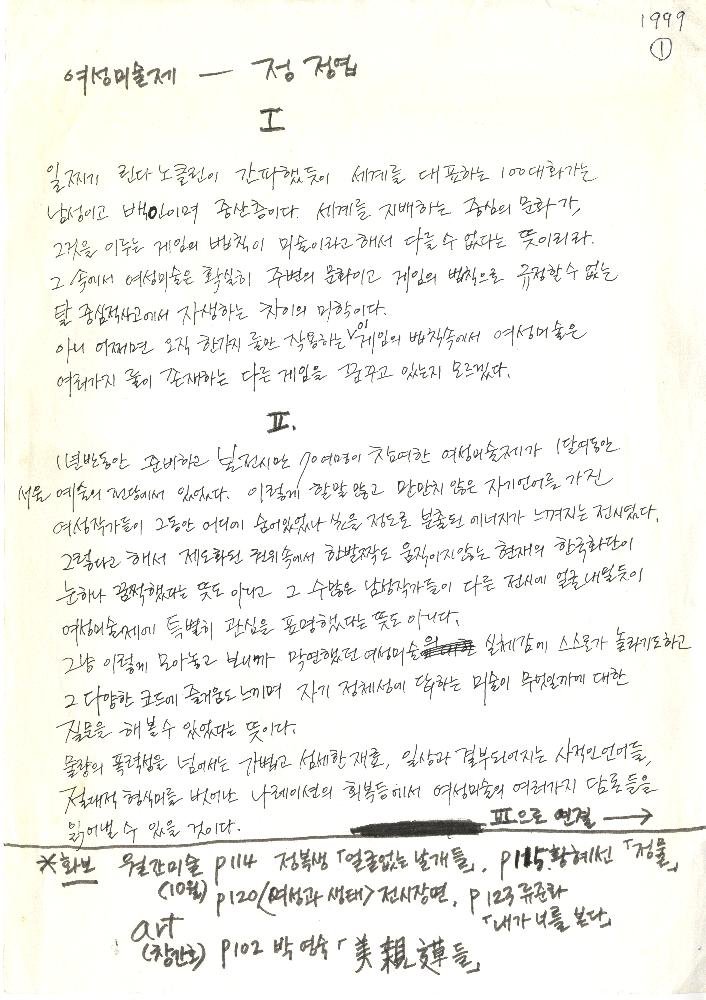 1999
①
여성미술제 — 정정엽
I
일찌기 린다 노클린이 간파했듯이 세계를 대표하는 100대화가는
남성이고 백인이며 중산층이다. 세계를 지배하는 중심의 문화가,
그것을 이루는 게임의 법칙이 미술이라고 해서 다를 수 없다는 뜻이리라.
그 속에서 여성미술은 확실히 주변의 문화이고 게임의 법칙으로 규정할 수 없는
탈 중심적사고에서 자생하는 차이의 미학이다.
아니 어쩌면 오직 한가지 룰만 작용하는 이 게임의 법칙속에서 여성미술은
여러가지 룰이 존재하는 다른 게임을 꿈꾸고 있는지 모르겠다.
II.
1년반동안 준비하고 본전시만 70여명이 참여한 여성미술제가 1달여동안
서울 예술의 전당에서 있었다. 이렇게 할말 많고 만만치 않은 자기언어를 가진
여성작가들이 그동안 어디에 숨어있었나 싶을 정도로 분출된 에너지가 느껴지는 전시였다.
그렇다고 해서 제도화된 권위속에서 한발짝도 움직이지않는 현재의 한국화단이
눈하나 꿈쩍했다는 뜻도 아니고 그 수많은 남성작가들이 다른 전시에 얼굴내밀듯이
여성미술제에 특별히 관심을 표명했다는 뜻도 아니다.
그냥 이렇게 모아놓고 보니까 막연했던 여성미술의 실체감에 스스로가 놀라기도하고
그 다양한 코드에 즐거움도 느끼며 자기 정체성에 답하는 미술이 무엇일까에 대한
질문을 해볼수 있었다는 뜻이다.
물량의 폭력성을 넘어서는 가볍고 섬세한 재료, 일상과 결부되어지는 사적인언어들,
절대적 형식미를 벗어난 나레이션의 회복등에서 여성미술의 여러가지 담론들을
읽어낼 수 있을 것이다.
III으로 연결 →
*화보 월간미술 p114 정복생「얼굴없는 날개들」, p115.황혜선「정물」
(10월) p120〈여성과 생태〉전시장면, p123 류준화
「내가 너를 본다」
art
(창간호) p102 박영숙「美親 草들」